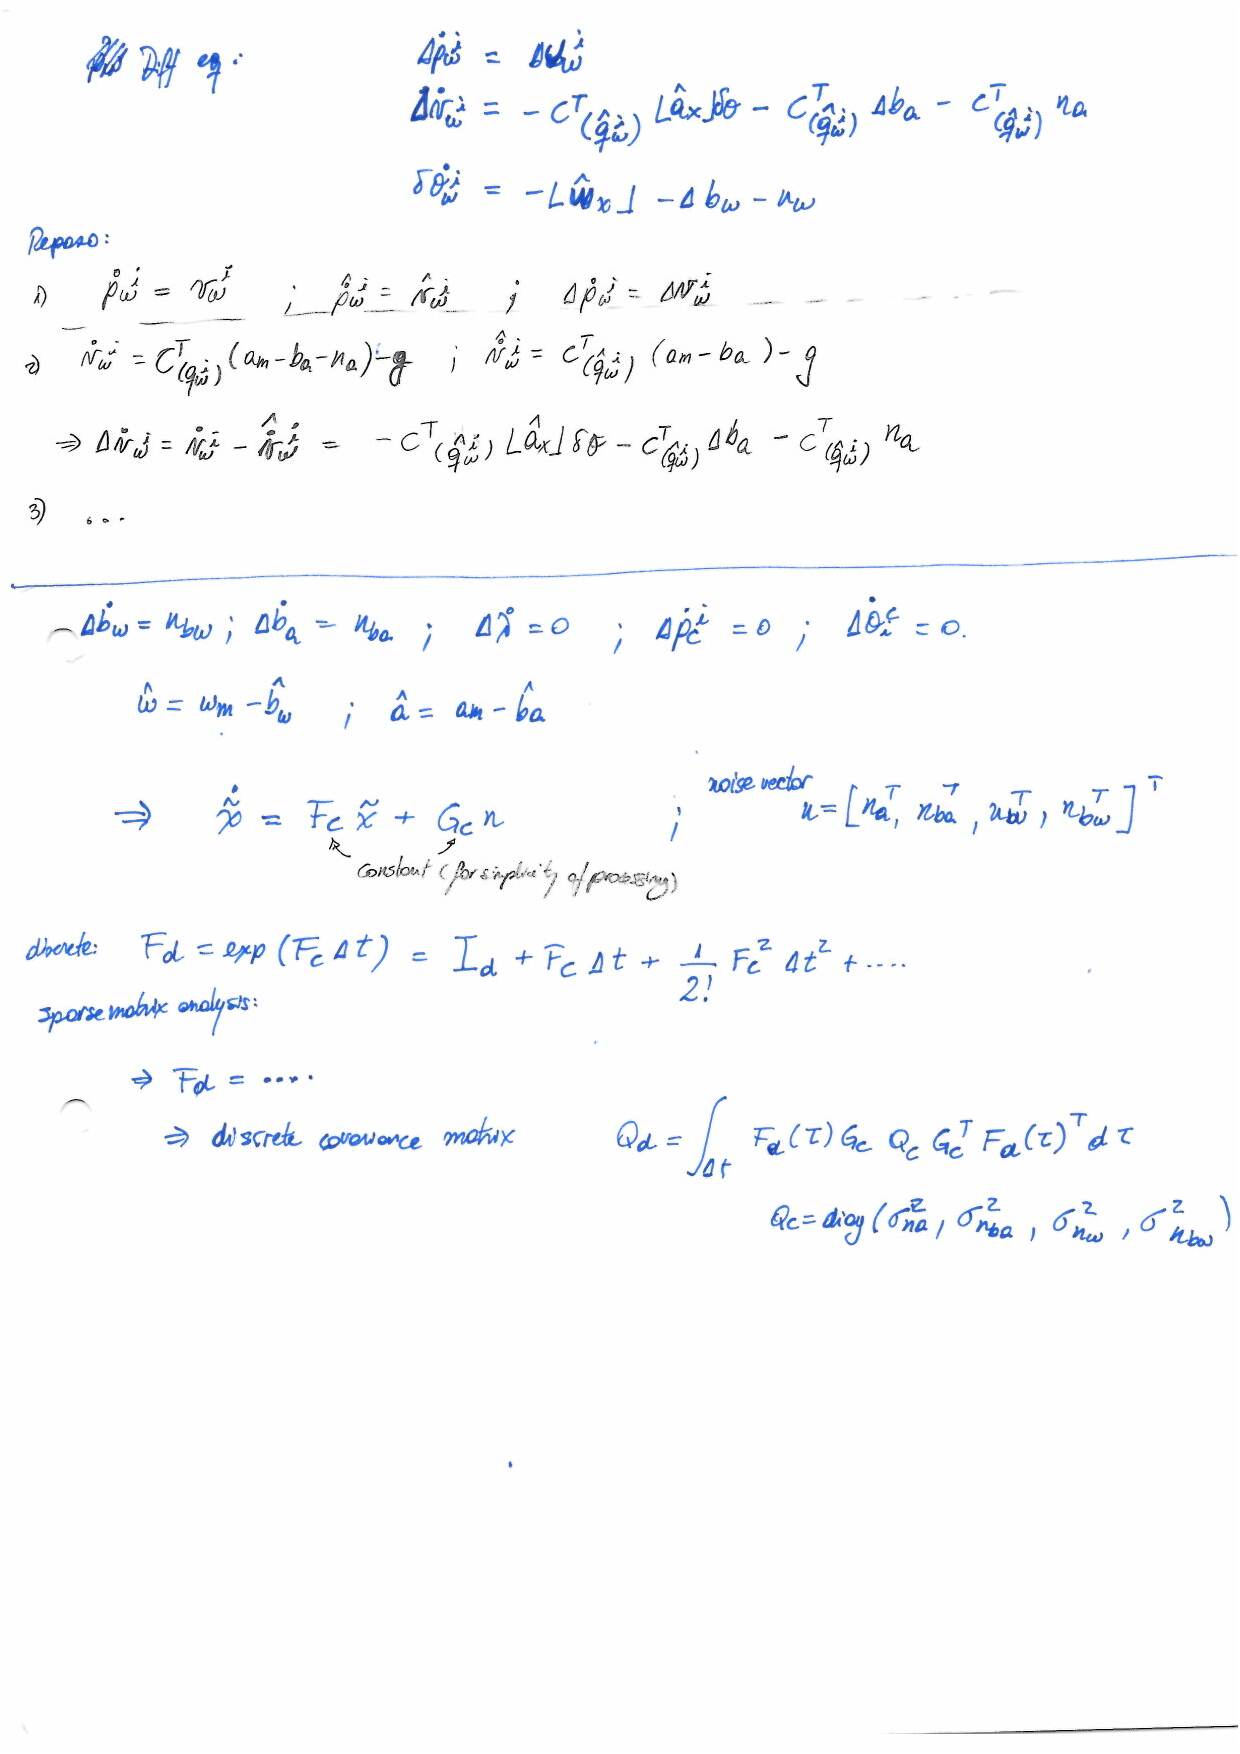 Diff eq: Δṗ_w^i = Δv_w^i
Δv̇_w^i = - C^T_(q̂_w^i) ⌊âx⌋δθ - C^T_(q̂_w^i) Δb_a - C^T_(q̂_w^i) n_a
δθ̇_w^i = -⌊ŵx⌋ - Δb_w - n_w
Repaso:
1) ṗ_w^i = v_w^i ; p̂̇_w^i = v̂_w^i ; Δṗ_w^i = Δv_w^i
2) v̇_w^i = C^T_(q_w^i) (am - ba - na) - g ; v̂̇_w^i = C^T_(q̂_w^i) (am - ba) - g
⇒ Δv̇_w^i = v̇_w^i - v̂̇_w^i = - C^T_(q̂_w^i) ⌊âx⌋ δθ - C^T_(q̂_w^i) Δb_a - C^T_(q̂_w^i) n_a
3) ...
- Δḃ_w = n_bw ; Δḃ_a = n_ba ; Δλ̇ = 0 ; Δṗ_c^i = 0 ; Δθ̇_i^c = 0.
ŵ = w_m - b̂_w ; â = am - b̂a
⇒ x̃̇ = F_c x̃ + G_c n ; noise vector n = [n_a^T, n_ba^T, n_w^T, n_bw^T]^T
constant (for simplicity of processing)
discrete: F_d = exp(F_c Δt) = I_d + F_c Δt + 1/2! F_c^2 Δt^2 + ....
sparse matrix analysis:
⇒ F_d = ....
⇒ discrete covariance matrix Q_d = ∫_Δt F_d(τ) G_c Q_c G_c^T F_d(τ)^T dτ
Q_c = diag(σ_na^2, σ_nba^2, σ_nw^2, σ_nbw^2)